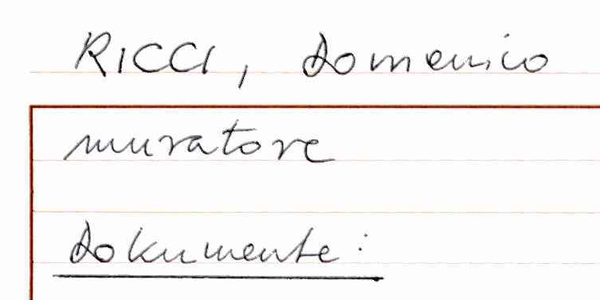 RICCI, Domenico
muratore
Dokumente: